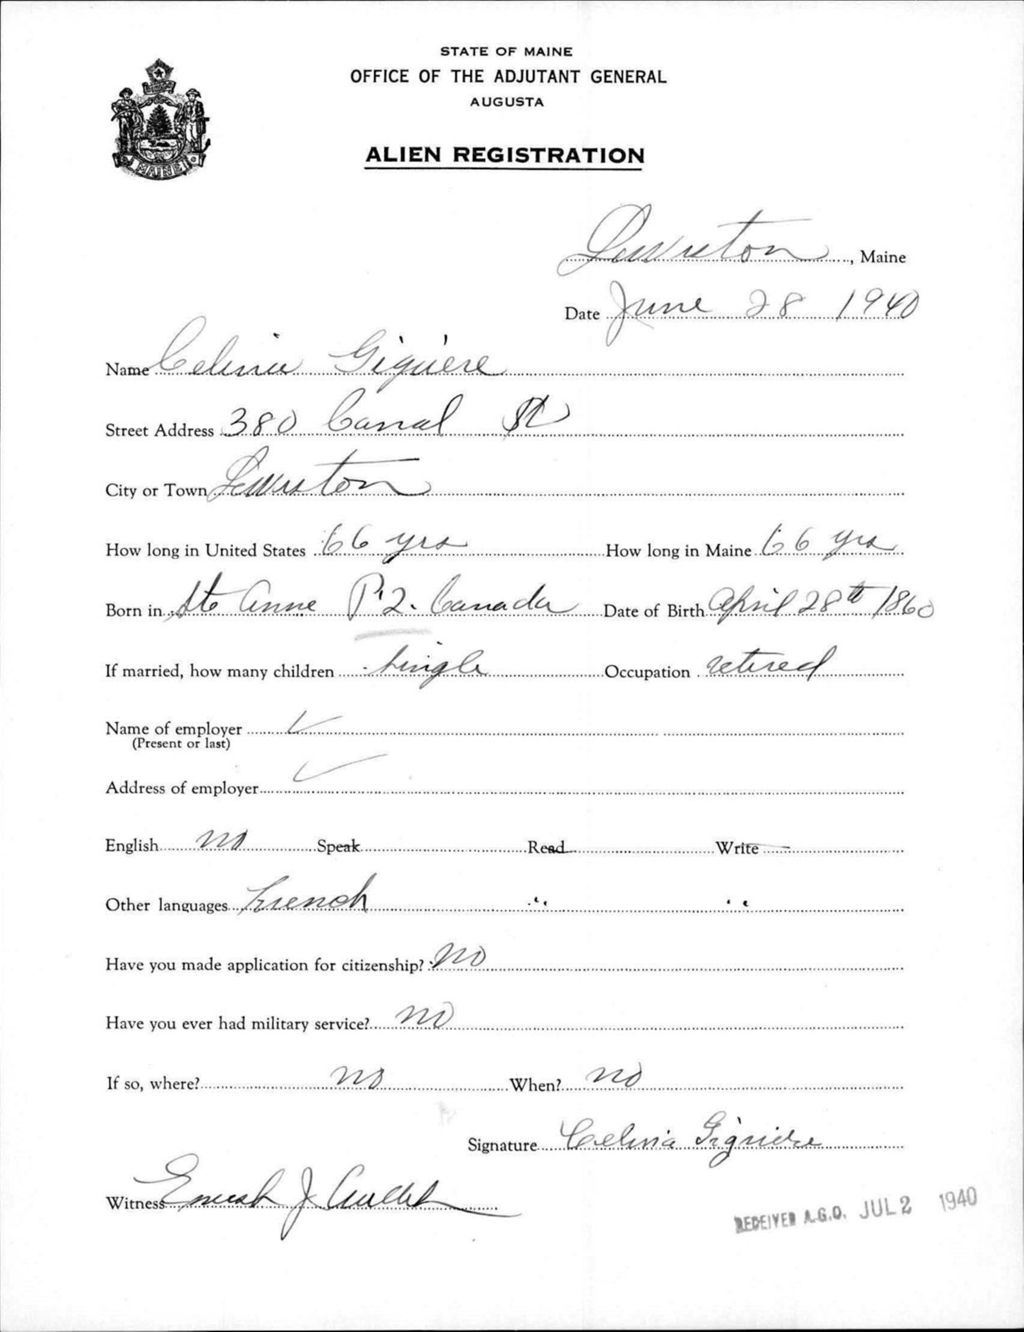 STATE OF MAINE
OFFICE OF THE ADJUTANT GENERAL
AUGUSTA
ALIEN REGISTRATION
MAINE
Lewiston, Maine
Date June 28 1940
Name Celinia Giguere
Street Address 380 Canal St
City or Town Lewiston
How long in United States 66 yrs How long in Maine 66 yrs
Born in Ste Anne P.Q. Canada Date of Birth April 28th 1860
If married, how many children single Occupation retired
Name of employer ✓
(Present or last)
Address of employer ✓
English no Speak Read Write
Other languages French " "
Have you made application for citizenship? No
Have you ever had military service? no
If so, where? no When? no
Signature Celinia Giguere
Witness J
RECEIVED A.G.O. JUL 2 1940